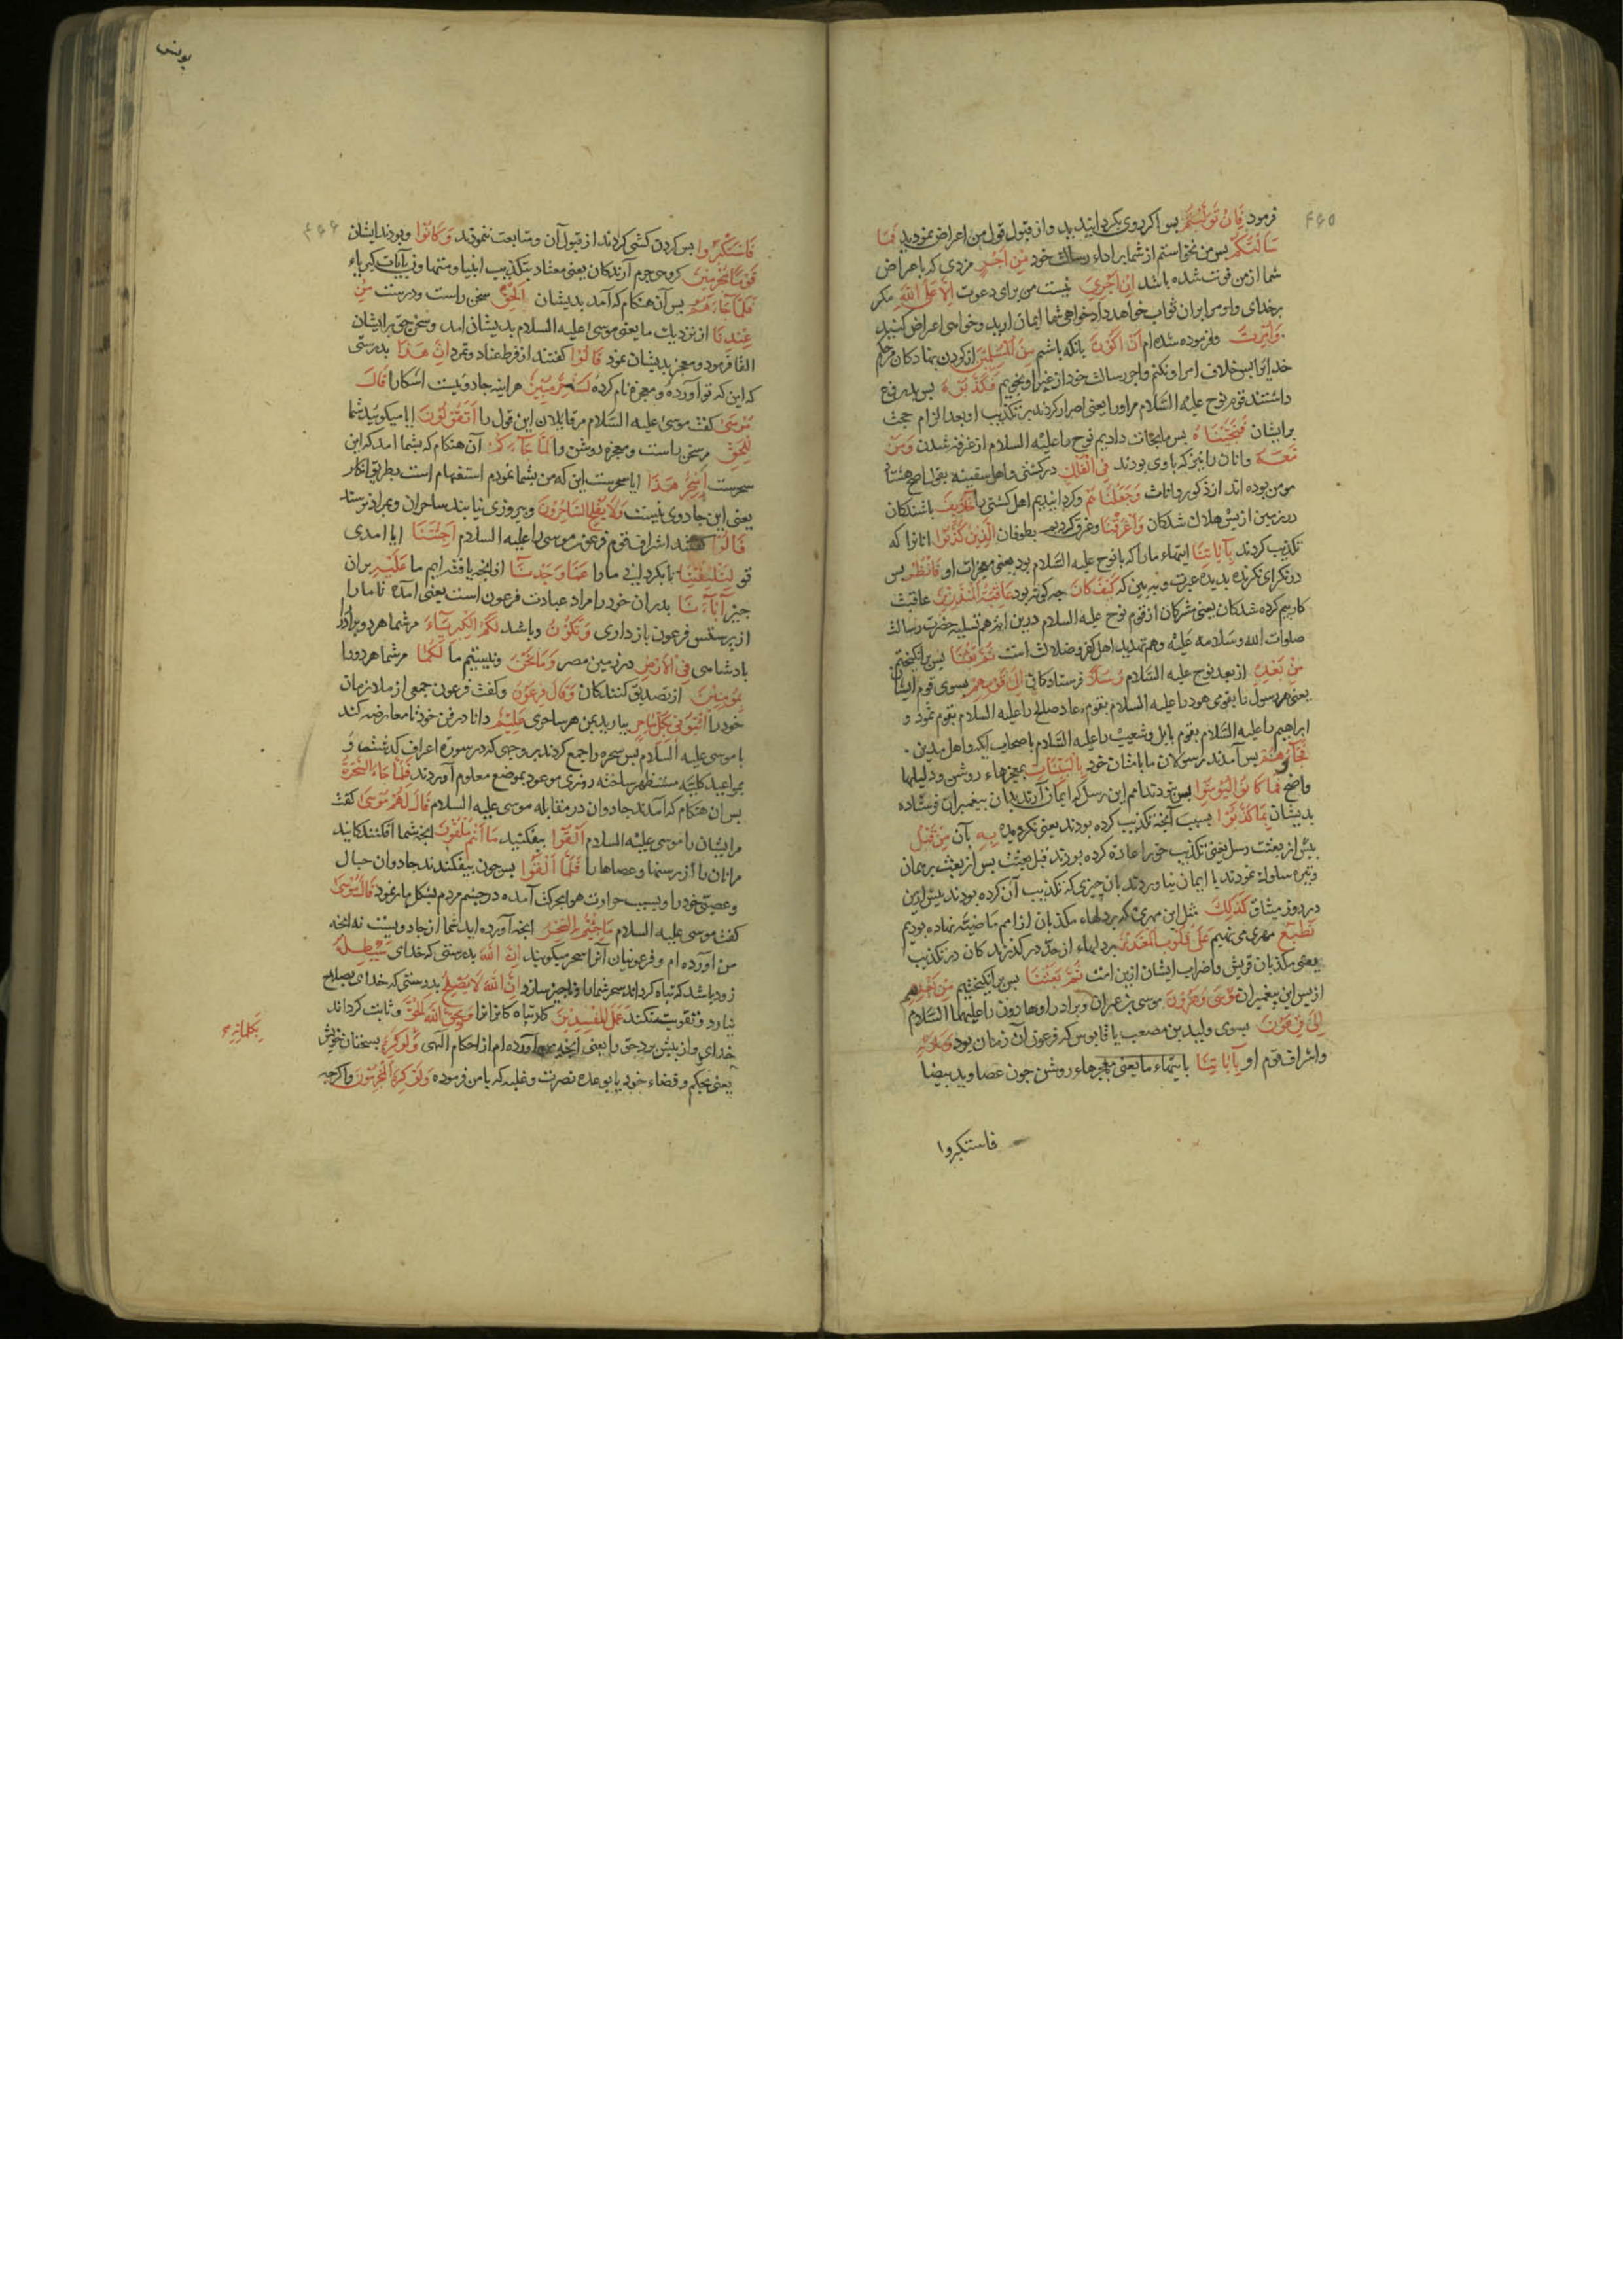 ۴۶۵
فرمود فَاِنْ تَوَلَّیْتُمْ پس اکر روی بکردانیدید واز قبول قول من اعراض نمودید فَمَا
سَاَلْتُکُمْ پس من نخواستم از شما برا داء رسالت خود مِنْ اَجْرٍ مزدی که باعراض
شما از من فوت شده باشد اِنْ اَجْرِیَ نیست من برای دعوت اِلَّا عَلَی اللّٰهِ مکر
برخدای واو مرا بران ثواب خواهد داد خواهی شما ایمان ارید وخواهی اعراض کنید
وَاُمِرْتُ وفرموده شده ام اَنْ اَکُوْنَ بانکه باشم مِنَ الْمُسْلِمِیْنَ از کردن نهادکان مرحکم
خدایرا پس خلاف امر او نکنم واجر رسالت خود از غیر او نجویم فَکَذَّبُوْهُ پس بدروغ
داشتند قوم نوح علیه السلام مراورا یعنی اصرار کردند بر تکذیب او بعد الزام حجت
برایشان فَنَجَّیْنَاهُ پس ما نجات دادیم نوح را علیه السلام از غرقه شدن وَمَنْ
مَعَهُ وانان را نیز که باوی بودند فِی الْفُلْکِ در کشتی واهل سفینه بقول اصح هشتاد
مومن بوده اند از ذکور واناث وَجَعَلْنَاهُمْ وکردانیدیم اهل کشتی را خَلَآئِفَ باشندکان
در زمین از پس هلاک شدکان وَاَغْرَقْنَا وغرق کردیم بطوفان الَّذِیْنَ کَذَّبُوْا انانرا که
تکذیب کردند بِآیَاتِنَا ایتهاء مارا که بانوح علیه السلام بود یعنی معجزات او فَانْظُرْ پس
در نکر ای نکرنده بدیده عبرت وببین که کَیْفَ کَانَ چه کونه بود عَاقِبَةُ الْمُنْذَرِیْنَ عاقبت
کار بیم کرده شدکان یعنی مشرکان از قوم نوح علیه السلام درین ایت هم تسلیه حضرت رسالت
صلوات الله وسلامه علیه وهم تهدید اهل کفر وضلالت است ثُمَّ بَعَثْنَا پس برانکیختیم
مِنْ بَعْدِهِ از بعد نوح علیه السلام رُسُلًا فرستادکانی اِلٰی قَوْمِهِمْ بسوی قوم ایشان
یعنی هر رسول را بقومی هود را علیه السلام بقوم عاد صالح را علیه السلام بقوم ثمود و
ابراهیم را علیه السلام بقوم بابل وشعیب را علیه السلام باصحاب ایکه واهل مدین
فَجَآءُوْهُمْ پس آمدند رسولان ما بامتان خود بِالْبَیِّنَاتِ بمعجزهاء روشن ودلیلها
واضح فَمَا کَانُوْا لِیُؤْمِنُوْا پس نبودند امم این رسل که ایمان آرند بدان پیغمبران فرستاده
بدیشان بِمَا کَذَّبُوْا بسبب آنچه تکذیب کرده بودند یعنی نکرویده بِهِ بآن مِنْ قَبْلُ
پیش از بعثت رسل یعنی تکذیب حق را عاده کرده بودند قبل بعثت پس از بعثت بر همان
وتیره سلوک نمودند یا ایمان نیاوردند بان چیزی که تکذیب آن کرده بودند پیش ازین
در روز میثاق کَذٰلِکَ مثل این مهری که بر دلهاء مکذبان از امم ماضیه نهاده بودیم
نَطْبَعُ مهری می نهیم عَلٰی قُلُوْبِ الْمُعْتَدِیْنَ بر دلهاء از حد در کذرندکان در تکذیب
یعنی مکذبان قریش واضراب ایشان ازین امت ثُمَّ بَعَثْنَا پس برانکیختیم مِنْ بَعْدِهِمْ
از پس این پیغمبران مُوْسٰی وَهٰرُوْنَ موسی بن عمران وبرادر او هارون را علیهما السلام
اِلٰی فِرْعَوْنَ بسوی ولید بن مصعب یا قابوس که فرعون آن زمان بود وَمَلَاِئِهِ
واشراف قوم او بِآیَاتِنَا بایتهاء ما یعنی معجزهاء روشن چون عصا وید بیضا
فاستکبروا
یونس
۴۶۶
فَاسْتَکْبَرُوْا پس کردن کشی کردند از قبول آن ومتابعت ننمودند وَکَانُوْا وبودند ایشان
قَوْمًا مُجْرِمِیْنَ کروهی جرم آرندکان یعنی معتاد بتکذیب انبیا ومتهاون بآیات کبریاء
فَلَمَّا جَآءَهُمْ پس آن هنکام که آمد بدیشان الْحَقُّ سخن راست ودرست مِنْ
عِنْدِنَا از نزدیک ما یعنی موسی علیه السلام بدیشان امد وسخن حق برایشان
القا فرمود ومعجزه بدیشان نمود قَالُوْا کفتند از فرط عناد وتمرد اِنَّ هٰذَا بدرستی
که این که تو آورده ومعجزه نام کرده لَسِحْرٌ مُبِیْنٌ هراینه جادوییست اشکارا قَالَ
مُوْسٰی کفت موسی علیه السلام مر قایلان این قول را اَتَقُوْلُوْنَ ایا میکویید شما
لِلْحَقِّ مر سخن راست ومعجزه روشن را لَمَّا جَآءَکُمْ آن هنکام که بشما امد که این
سحرست اَسِحْرٌ هٰذَا ایا سحرست این که من بشما نمودم استفهام است بطریق انکار
یعنی این جادوی نیست وَلَا یُفْلِحُ السَّاحِرُوْنَ وپیروزی نیابند ساحران وبمراد نرسند
قَالُوْا کفتند اشراف قوم فرعون موسی را علیه السلام اَجِئْتَنَا ایا امدی
تو لِتَلْفِتَنَا تا بکردانی مارا عَمَّا وَجَدْنَا از انچه یافته ایم ما عَلَیْهِ بران
چیز آبَآءَنَا پدران خودرا مراد عبادت فرعون است یعنی آمده تا مارا
از پرستش فرعون باز داری وَتَکُوْنَ وباشد لَکُمَا الْکِبْرِیَآءُ مر شما هردو برادررا
پادشاهی فِی الْاَرْضِ در زمین مصر وَمَا نَحْنُ ونیستیم ما لَکُمَا مر شما هردورا
بِمُؤْمِنِیْنَ از تصدیق کنندکان وَقَالَ فِرْعَوْنُ وکفت فرعون جمعی از ملازمان
خودرا ائْتُوْنِیْ بِکُلِّ سَاحِرٍ بیارید بمن هر ساحری عَلِیْمٍ دانا در فن خود تا معارضه کند
با موسی علیه السلام پس سحره را جمع کردند بر وجهی که در سورة اعراف کذشت وَ
بمواعید کلیه مستظهر ساخته روزی موعود بموضع معلوم آوردند فَلَمَّا جَآءَ السَّحَرَةُ
پس ان هنکام که آمدند جادوان در مقابله موسی علیه السلام قَالَ لَهُمْ مُوْسٰی کفت
مرایشان را موسی علیه السلام اَلْقُوْا بیفکنید مَا اَنْتُمْ مُلْقُوْنَ انچه شما افکنندکانید
مرانان را از رسنها وعصاها را فَلَمَّا اَلْقَوْا پس چون بیفکندند جادوان حبال
وعصی خودرا وبسبب حرارت هوا بحرکت آمده در چشم مردم بشکل مار نمود قَالَ مُوْسٰی
کفت موسی علیه السلام مَا جِئْتُمْ بِهِ السِّحْرُ انچه آورده اید شما از جادوییست نه انچه
من آورده ام وفرعونیان آنرا سحر میکویند اِنَّ اللّٰهَ بدرستی که خدای سَیُبْطِلُهُ
زود باشد که تباه کرداند سحر شمارا وناچیز سازد اِنَّ اللّٰهَ لَا یُصْلِحُ بدرستی که خدای بصلاح
نیارد وتقویت نکند عَمَلَ الْمُفْسِدِیْنَ کار تباه کارانرا وَیُحِقُّ اللّٰهُ الْحَقَّ وثابت کرداند
خدای واز پیش برد حق را یعنی انچه من آورده ام از احکام الهی وَلَوْ کَرِهَ بسخنان خویش
بِکَلِمَاتِهِ
یعنی بحکم وقضاء خود یا بوعده نصرت وغلبه که با من فرموده وَلَوْ کَرِهَ الْمُجْرِمُوْنَ واکرچه